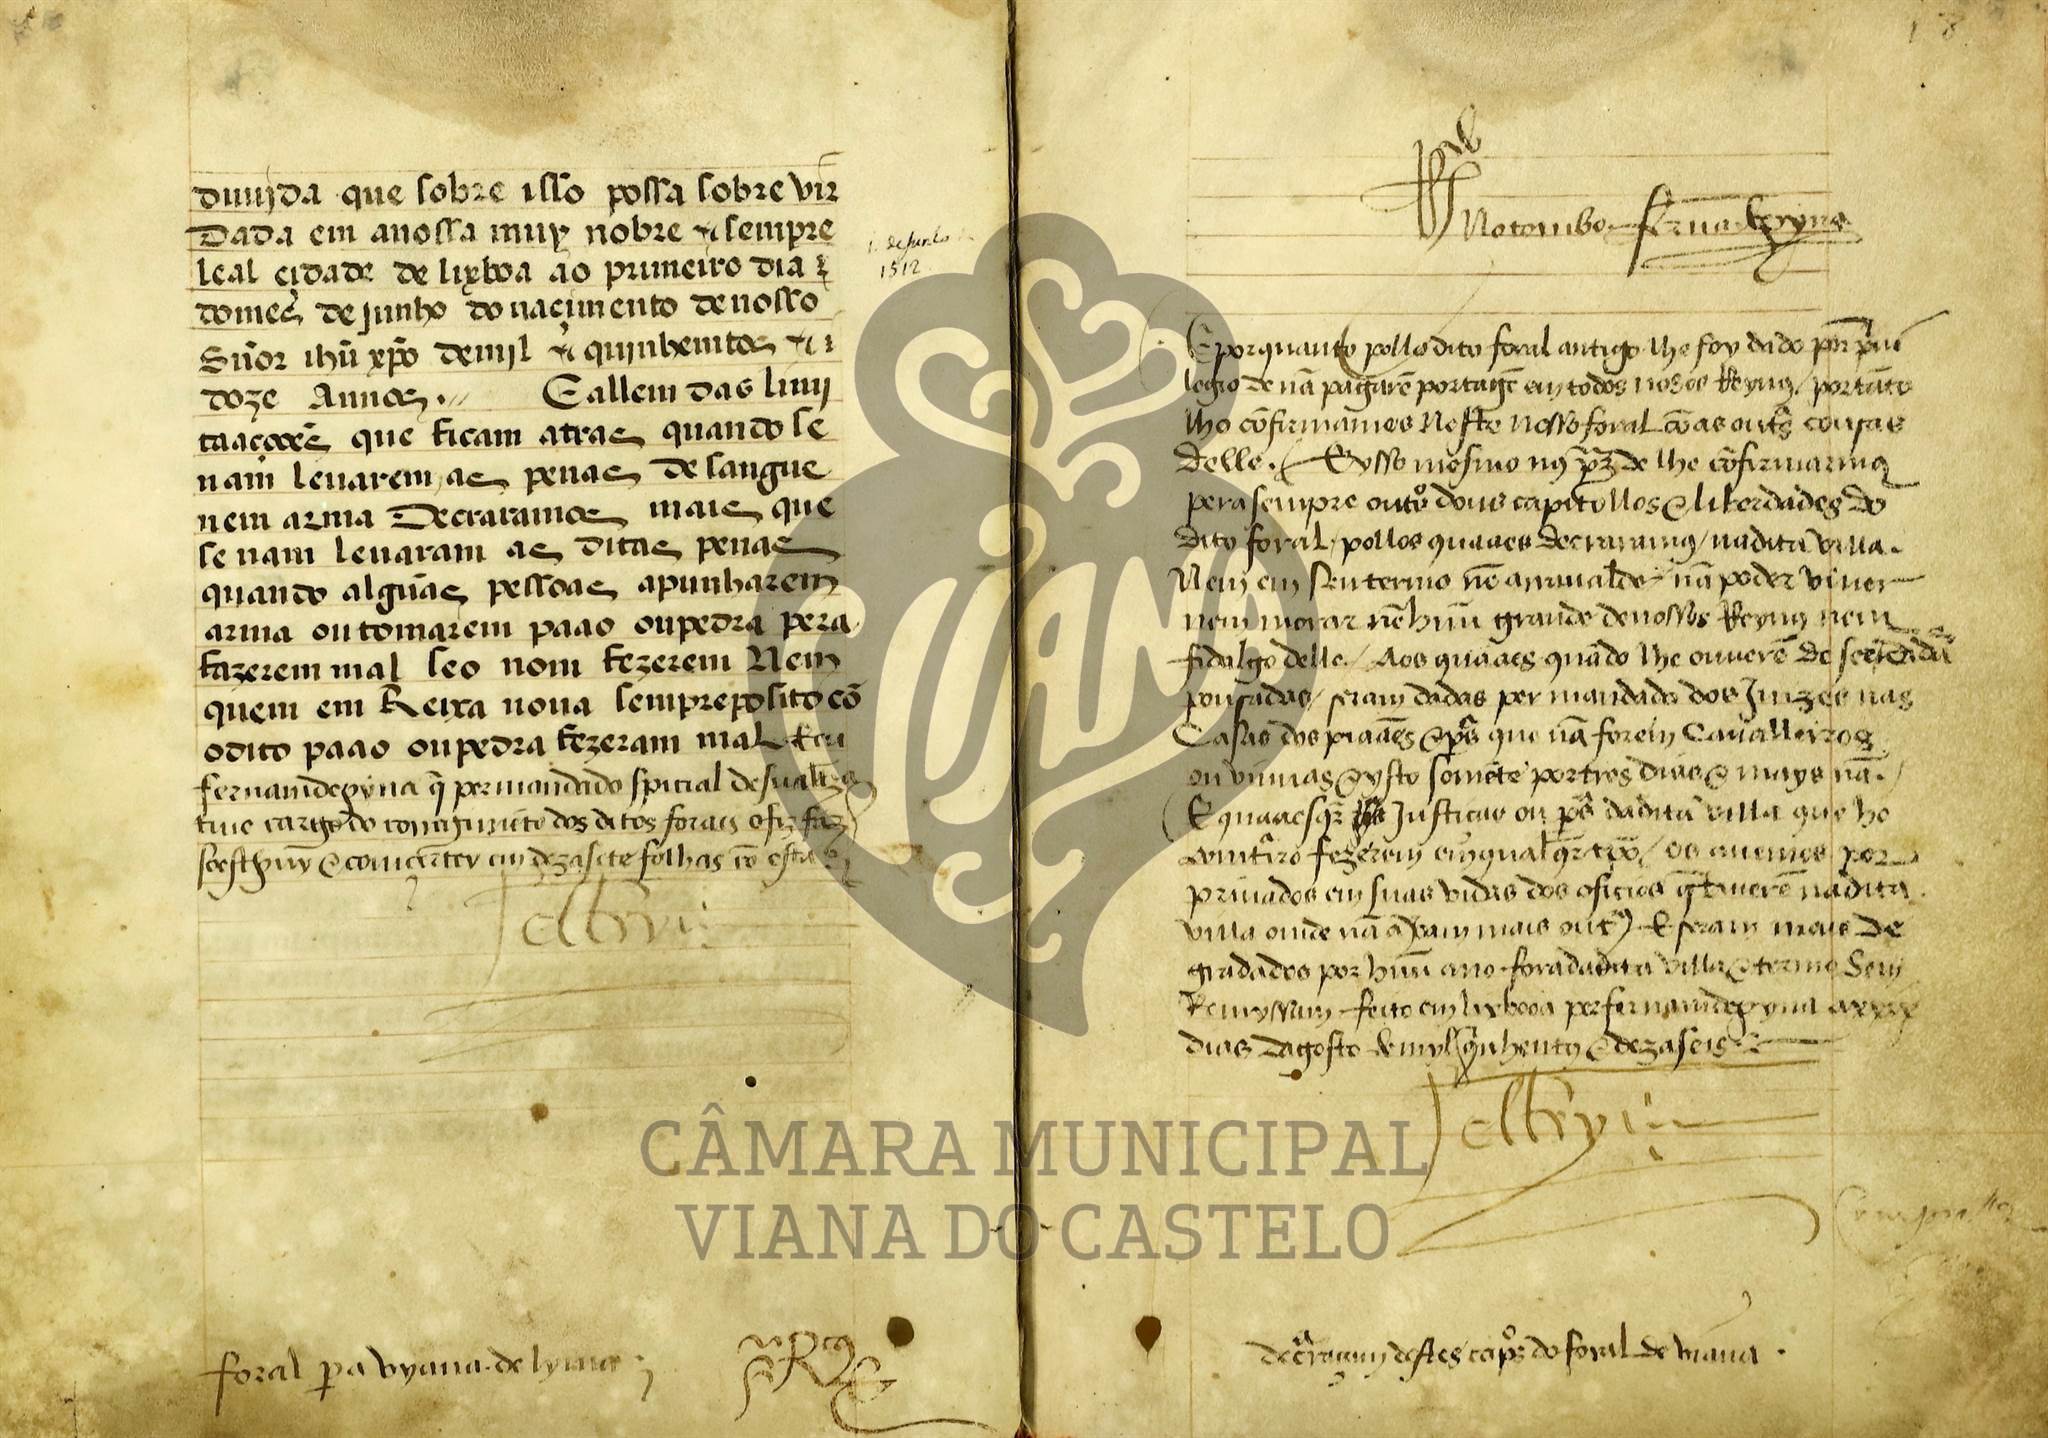 duujda que sobre isso possa sobre vir
Dada em anossa muy nobre & sempre
leal cidade de lixboa ao primeiro dia
domes de junho do nacimento de nosso
Sñor ihũ xp̃o demjl & quinhentos &
doze Annos. E allem das limi
taaçoões que ficam atras quando se
nam leuarem as penas de sangue
nem arma Decraramos mais que
se nam leuaram as ditas penas
quando algũas pessoas apunharem
arma ou tomarem paao ou pedra pera
fazerem mal se o nom fezerem Nem
quem em Reixa noua sem preposito cõ
o dito paao ou pedra fezeram mal E eu
fernam de pyna q̃ per mandado spicial de sua
tiue cargo do dos ditos foraes o fiz fazer
soescreuy & comcertey em dezasete folhas cõ esta
1 de Junho
1512
foral pa vyana de lyma
18
No tombo fernã de pyna
E porquanto pollo dito foral antigo lhe foy dado por priui
legio de nã pagarẽ portagẽ em todos nosos Reynos / portãto
lho cõfirmamos neste nosso foral cõ as outras cousas
delle. / E ysso mesmo nos praz de lhe cõfirmarmos
pera sempre outros dous capitollos & liberdades do
dito foral / pollos quaaes decraramos / na dita villa
Nem em seu termo nẽ arraualde / nã poder viuer
nem morar nẽ huũ grande de nossos Reynos nem
fidalgo delle / Aos quaaes quãdo lhe ouuerẽ de seer dadas
pousadas / seram dadas per mandado dos Juizes nas
Casas dos piaães & que nã forem Caualleiros
ou viuuas & ysto somẽte por tres dias & mays nã. /
E quaaesqr Justicas ou da dita villa que ho
contrairo fezerem em qualqr tpõ / os auemos por
priuados em suas vidas dos oficios q̃ teuerẽ na dita
villa onde nã ajam mais outros. E seram mais de
gradados por huũ ano fora da dita villa & termo Sem
Remyssam feito em lixboa per fernam de pyna a xxx
dias dagosto de myl & quinhentos & dezaseis
decraraçam destes capos do foral de viana.
CÂMARA MUNICIPAL
VIANA DO CASTELO